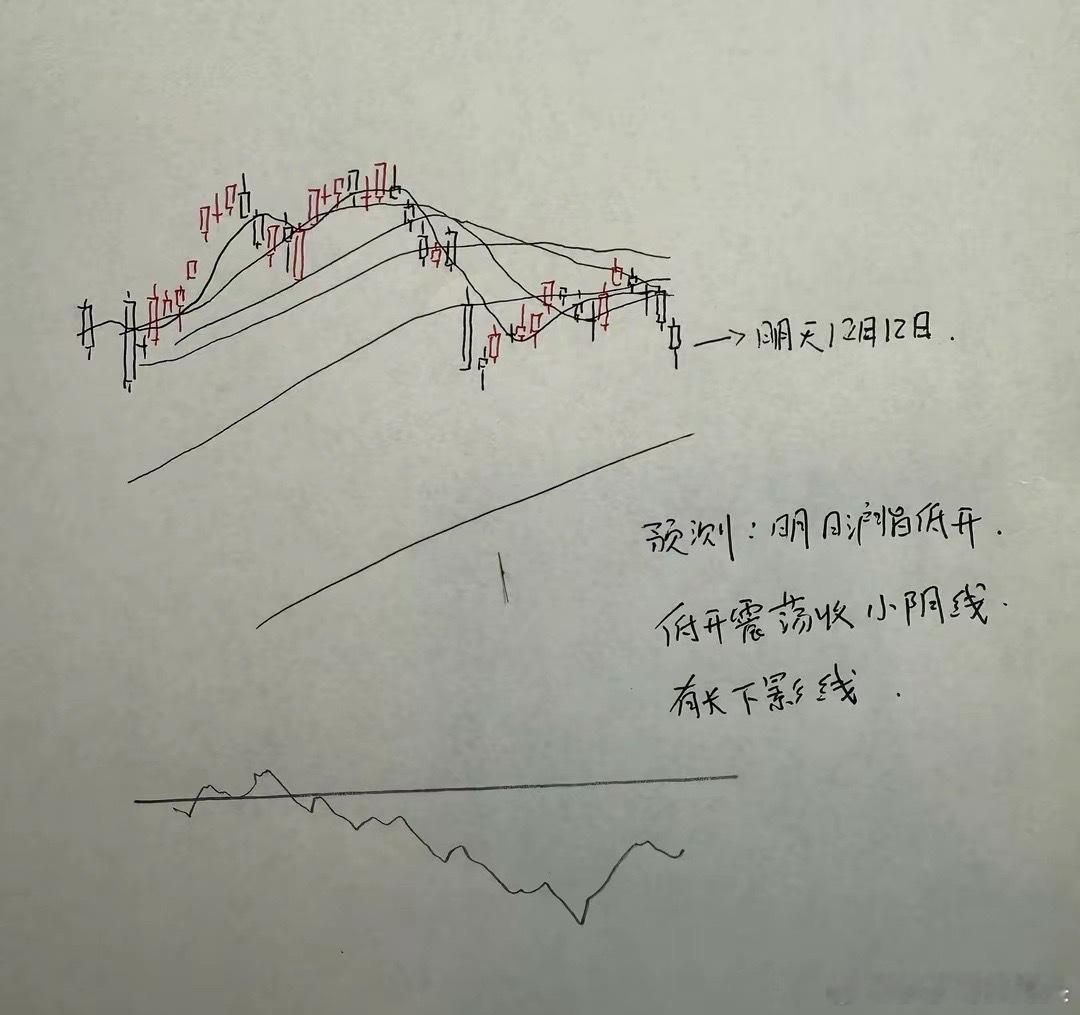 明天12月12日.
预测:明日沪指低开.
低开震荡收小阴线.
有长下影线.